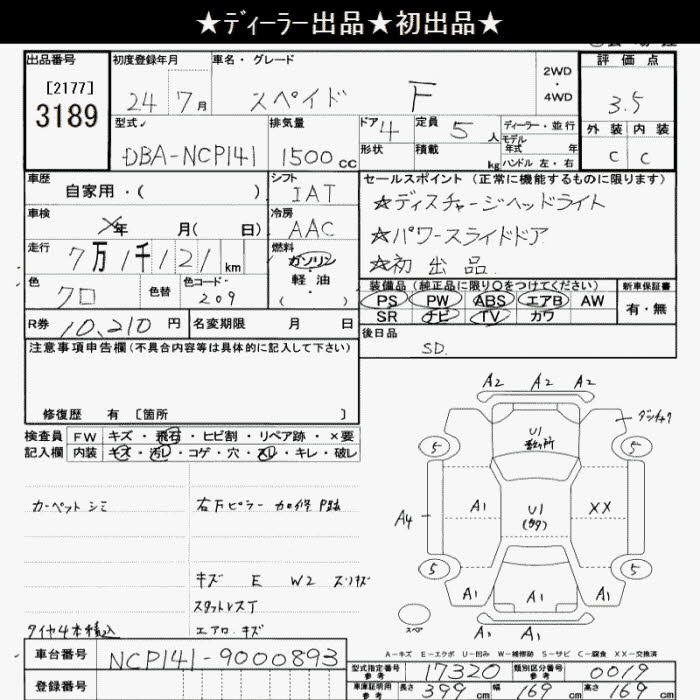 ★ディーラー出品★初出品★
出品番号
[2177]
3189
初度登録年月
24 7月
車名・グレード
スペイド F
2WD
・
4WD
評価点
3.5
外装 内装
C C
型式
DBA-NCP141
排気量
1500cc
ドア 4
形状
定員 5人
積載 kg
ディーラー・並行
モデル年式 年
ハンドル 左・右
車歴
自家用・( )
シフト
IAT
車検
年 月( 日)
冷房
AAC
走行
7万1千121km
燃料
ガソリン
軽・油
( )
色
クロ
色替
色コード
209
R券
10,210円
名変期限 月 日
セールスポイント (正常に機能するものに限ります)
☆ディスチャージヘッドライト
☆パワースライドドア
☆初出品
装備品 (純正品に限り○をつけてください)
PS PW ABS エアB AW
SR ナビ TV カワ
新車保証書
有・無
後日品
SD.
注意事項申告欄(不具合内容等は具体的に記入して下さい)
修復歴 有 〔箇所 〕
検査員
記入欄
FW キズ・飛石・ヒビ割・リペア跡・×要
内装 キズ・汚レ・コゲ・穴・スレ・キレ・破レ
カーペットシミ
右下ピラー加修P跡
キズ E W2 スリキズ
スタットレスT
タイヤ4本積込
エアロキズ
A2 A2 A2
U1
5 5
A1
U1
XX
A4
5 5
A1 A1 A1
A1 A1
スペア
A-キズ E-エクボ U-凹み W-補修跡 S-サビ C-腐食 XX-交換済
車台番号
NCP141-9000893
登録番号
型式指定番号
参考
17320
類別区分番号
参考
0019
車庫証明用
参考
長さ 399cm
幅 169cm
高さ 169cm